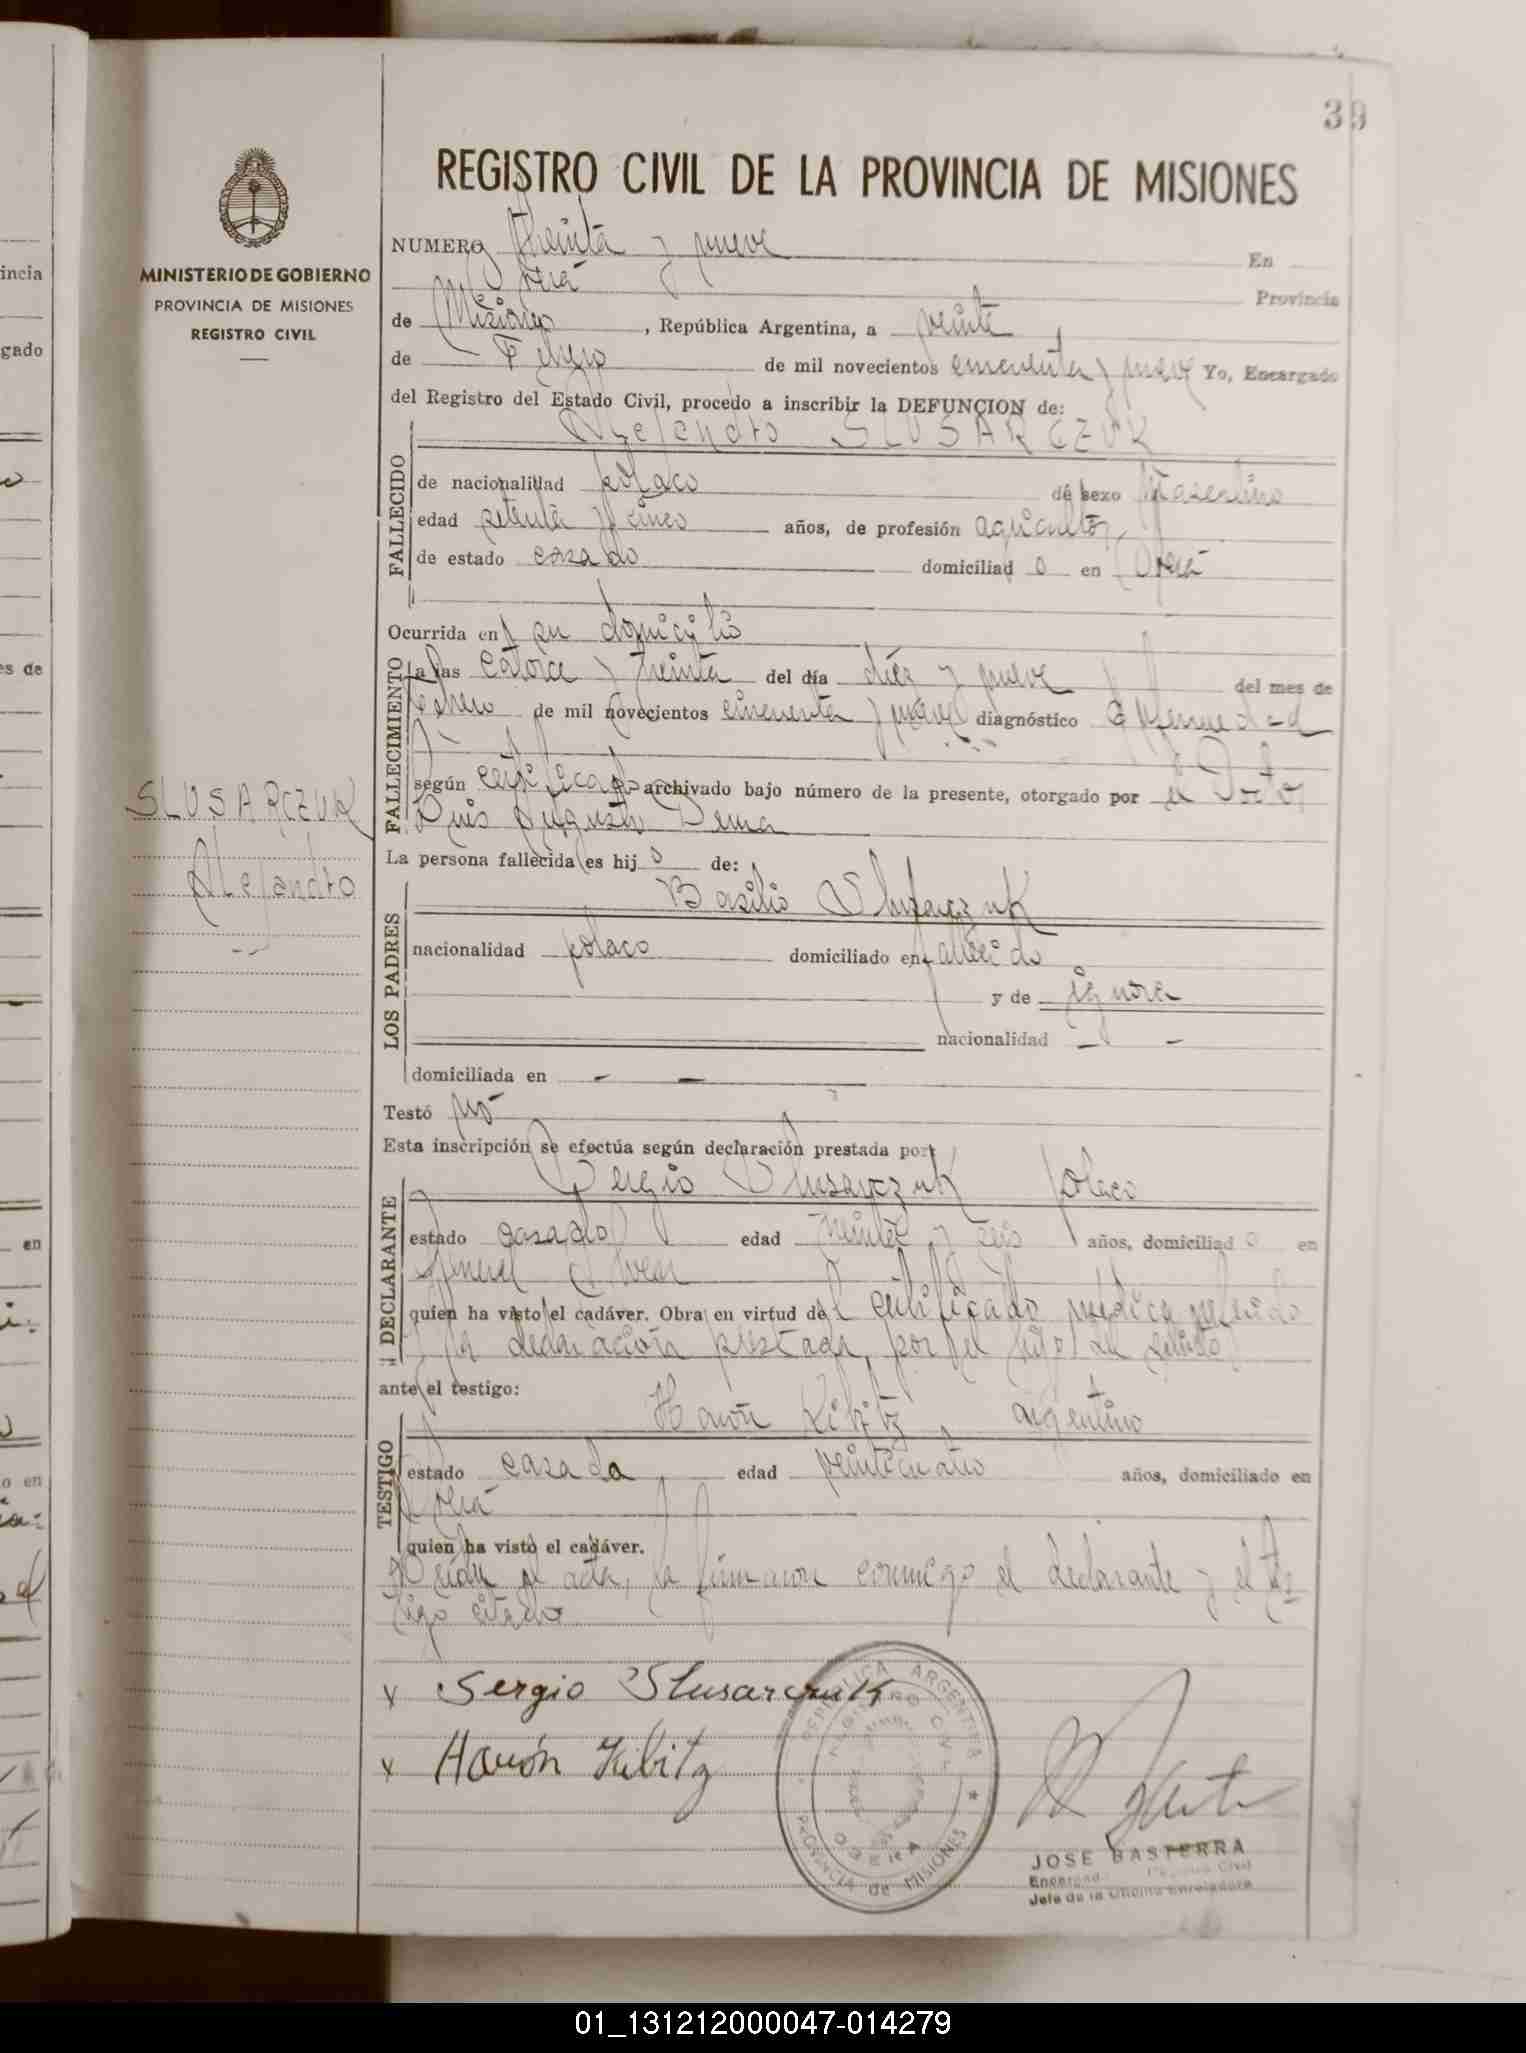 39
REGISTRO CIVIL DE LA PROVINCIA DE MISIONES
MINISTERIO DE GOBIERNO
PROVINCIA DE MISIONES
REGISTRO CIVIL
NUMERO treinta y nueve En
Oberá Provincia
de Misiones, República Argentina, a veinte
de Febrero de mil novecientos cincuenta y nueve Yo, Encargado
del Registro del Estado Civil, procedo a inscribir la DEFUNCION de:
Alejandro SLUSARCZUK
FALLECIDO
de nacionalidad polaco de sexo masculino
edad setenta y cinco años, de profesión agricultor
de estado casado domiciliad o en Oberá
Ocurrida en su domicilio
FALLECIMIENTO
a las catorce y treinta del día diez y nueve del mes de
febrero de mil novecientos cincuenta y nueve diagnóstico enfermedad
según certificado archivado bajo número de la presente, otorgado por el Doctor
Luis Augusto Derna
SLUSARCZUK
Alejandro
La persona fallecida es hij o de:
LOS PADRES
Basilio Slusarczuk
nacionalidad polaco domiciliado en fallecido
y de ignora
nacionalidad - -
domiciliada en - -
Testó no
Esta inscripción se efectúa según declaración prestada por
DECLARANTE
Sergio Slusarczuk polaco
estado casado edad treinta y seis años, domiciliad o en
General Alvear
quien ha visto el cadáver. Obra en virtud del certificado médico referido
y la declaración prestada por el hijo del
ante el testigo:
TESTIGO
Harón Kibitz argentino
estado casado edad veinticuatro años, domiciliado en
Oberá
quien ha visto el cadáver.
Leída el acta, la firmaron conmigo el declarante y el tes
tigo citado
x Sergio Slusarczuk
x Harón Kibitz
REPUBLICA ARGENTINA
REGISTRO CIVIL
OBERA
PROVINCIA de MISIONES
JOSE BASTERRA
Encargado Registro Civil
Jefe de la Oficina Enroladora
incia
gado
es de
en
o en
01_131212000047-014279